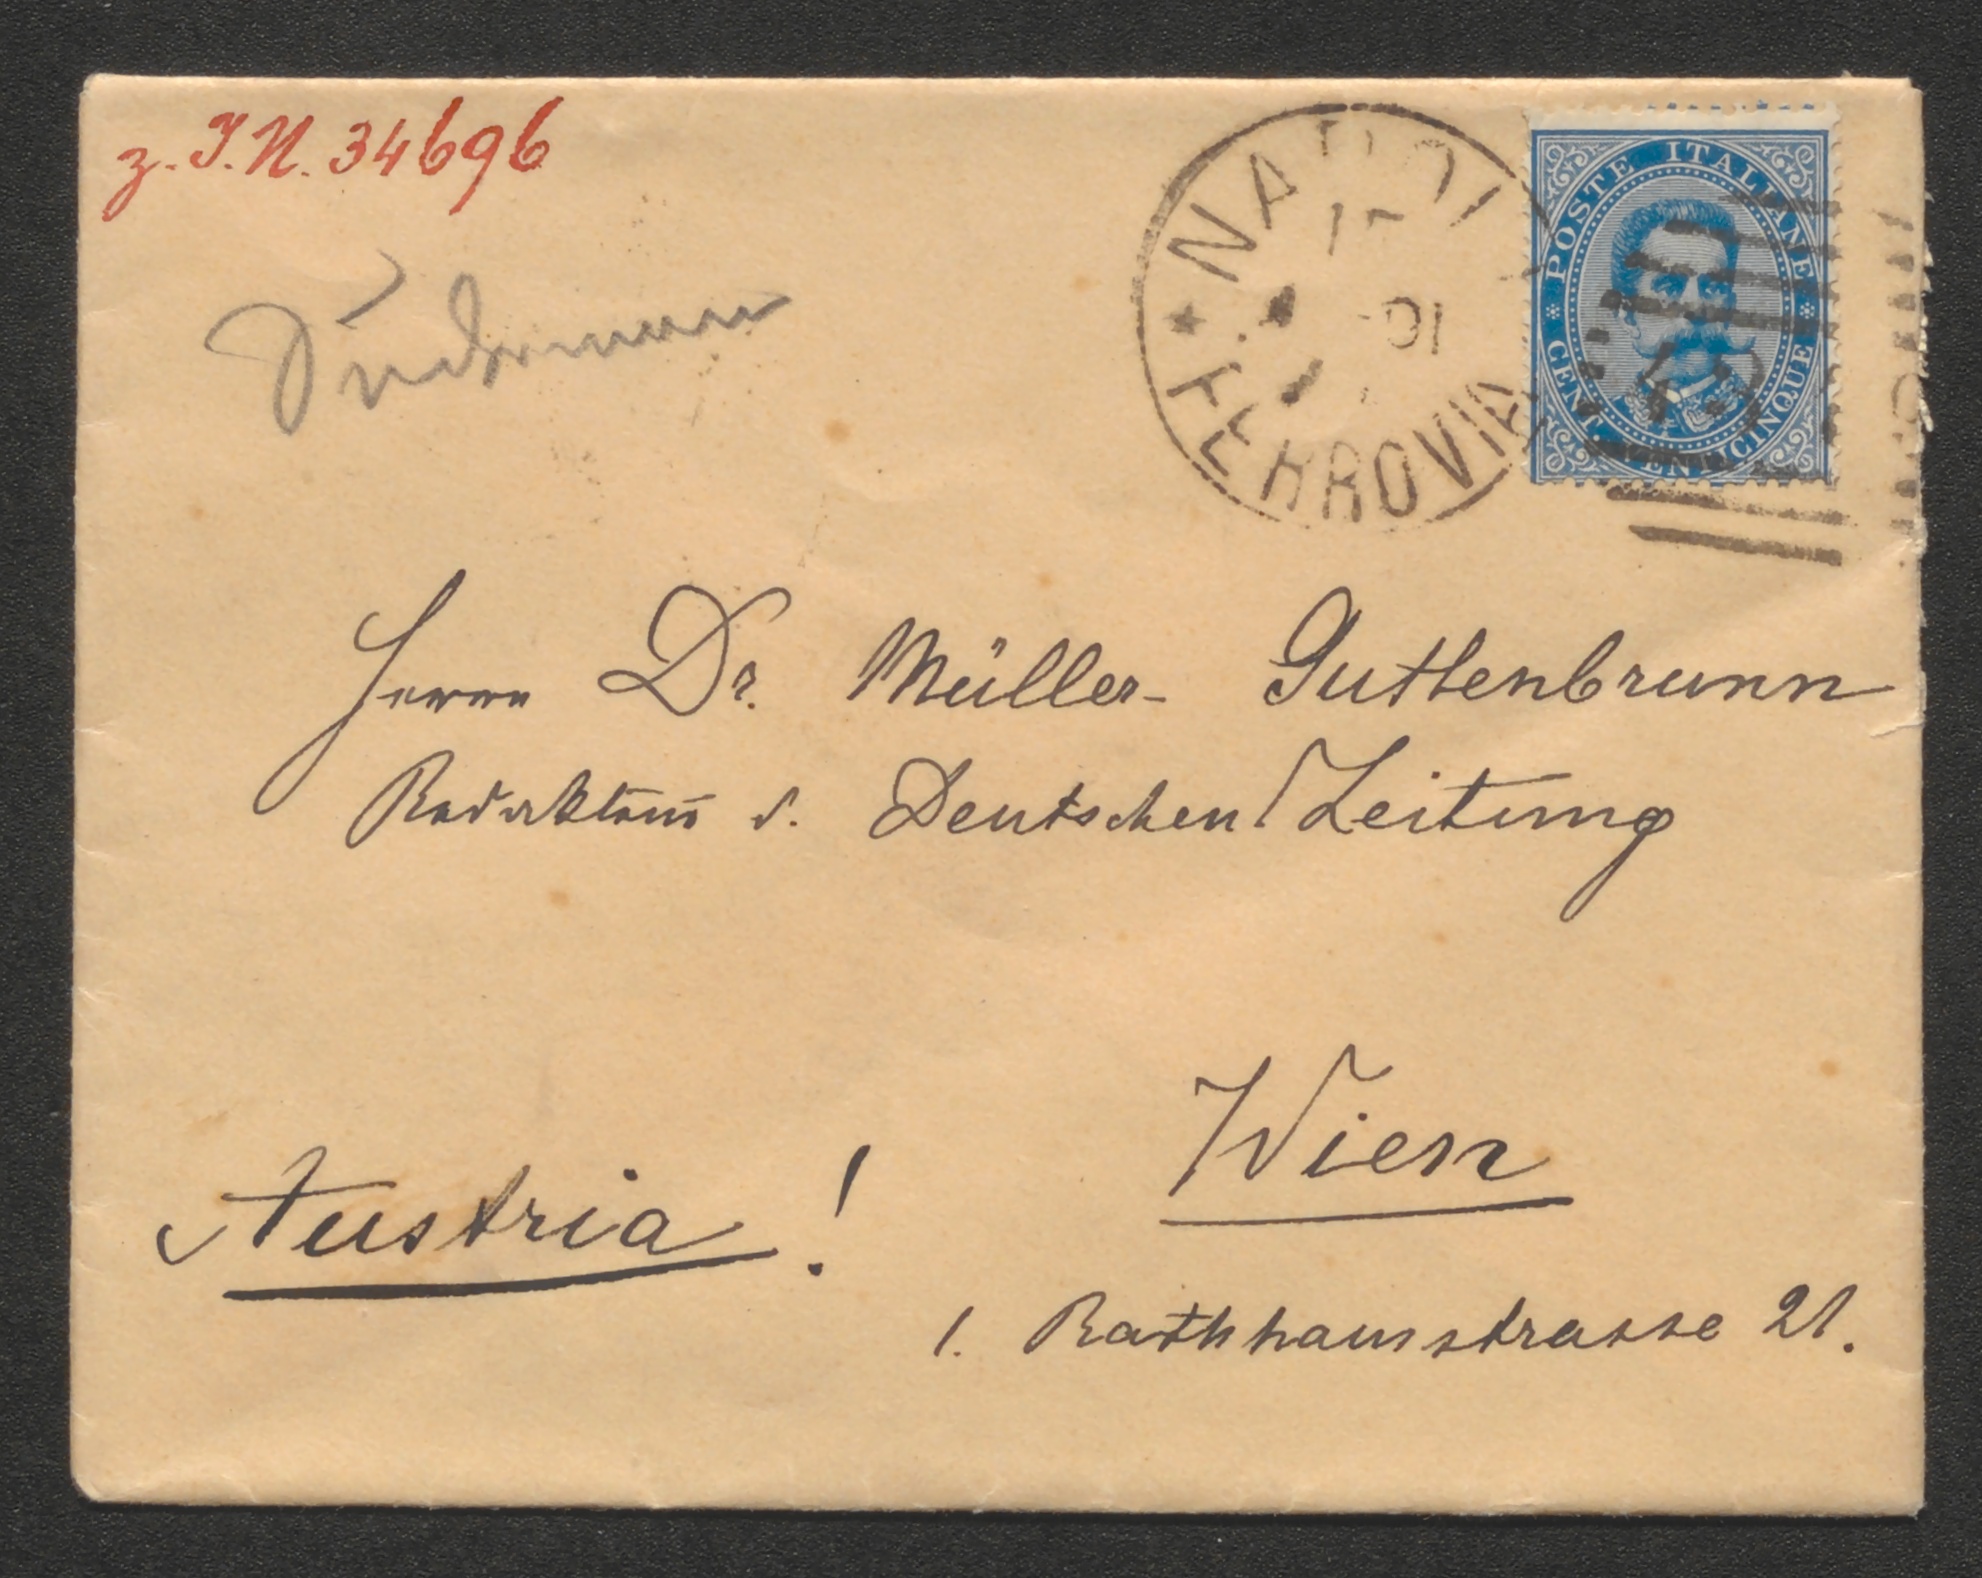 z. I.N. 34696
Sudermann
NAPOLI
91
FERROVIA
POSTE ITALIANE
CENT. VENTICINQUE
Herrn Dr. Müller-Guttenbrunn
Redakteur d. Deutschen Zeitung
Wien
Austria!
1. Rathhausstrasse 21.